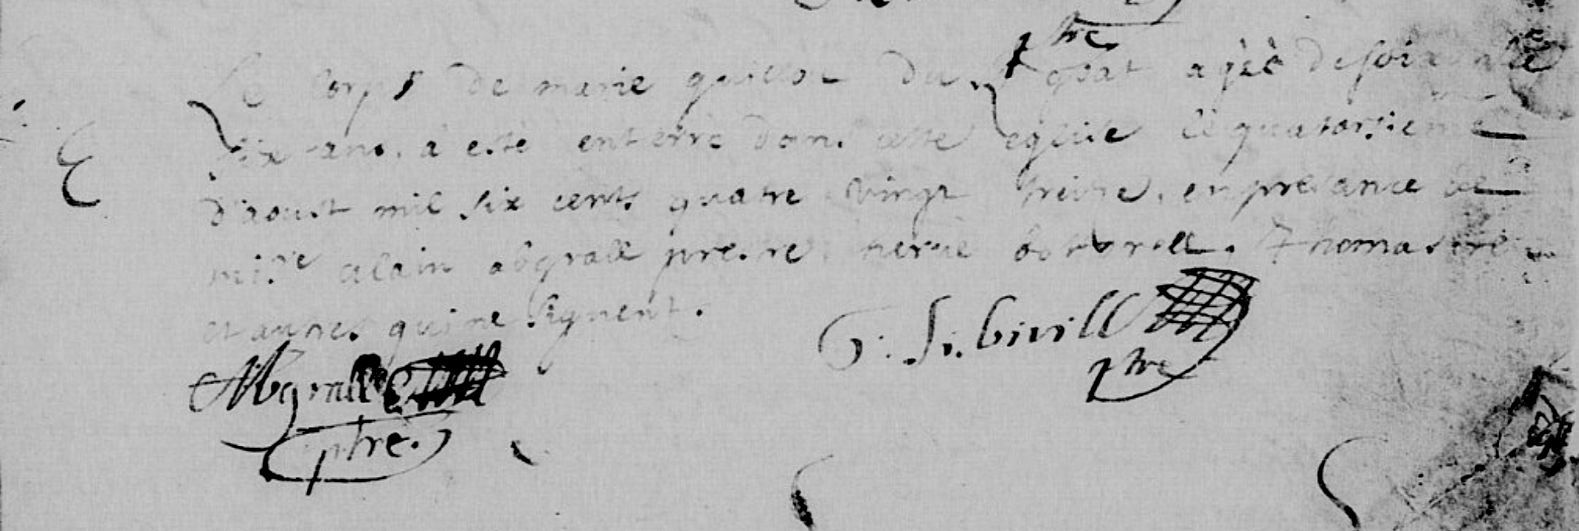 Le corps de marie guillot du goat agèè de soixante
six ans. a este enterré dans cette eglise le quatorsieme
d'aoust mil six cents quatre vingt treize. en presance de
missre alain abgrall prestre herué botorell. Thomas
et autres qui ne signent.
G. Si. bivill ptre
Abgrall
ptre.